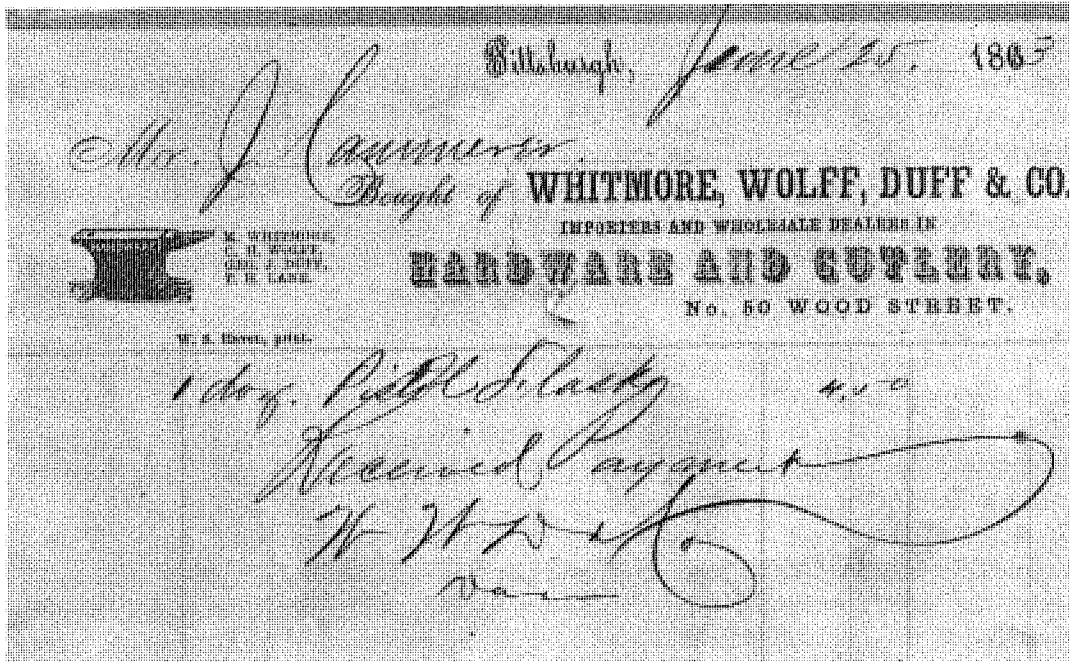 Pittsburgh, June 25. 1863
Mr. J. Cammerer.
Bought of WHITMORE, WOLFF, DUFF & CO.
IMPORTERS AND WHOLESALE DEALERS IN
HARDWARE AND CUTLERY,
No. 50 WOOD STREET.
M. WHITMORE,
C. H. WOLFF,
GEO. J. DUFF,
T. H. LANE.
W. S. Haven, print.
1 doz. Pistol Flasks 4.50
Received Payment
W W D &